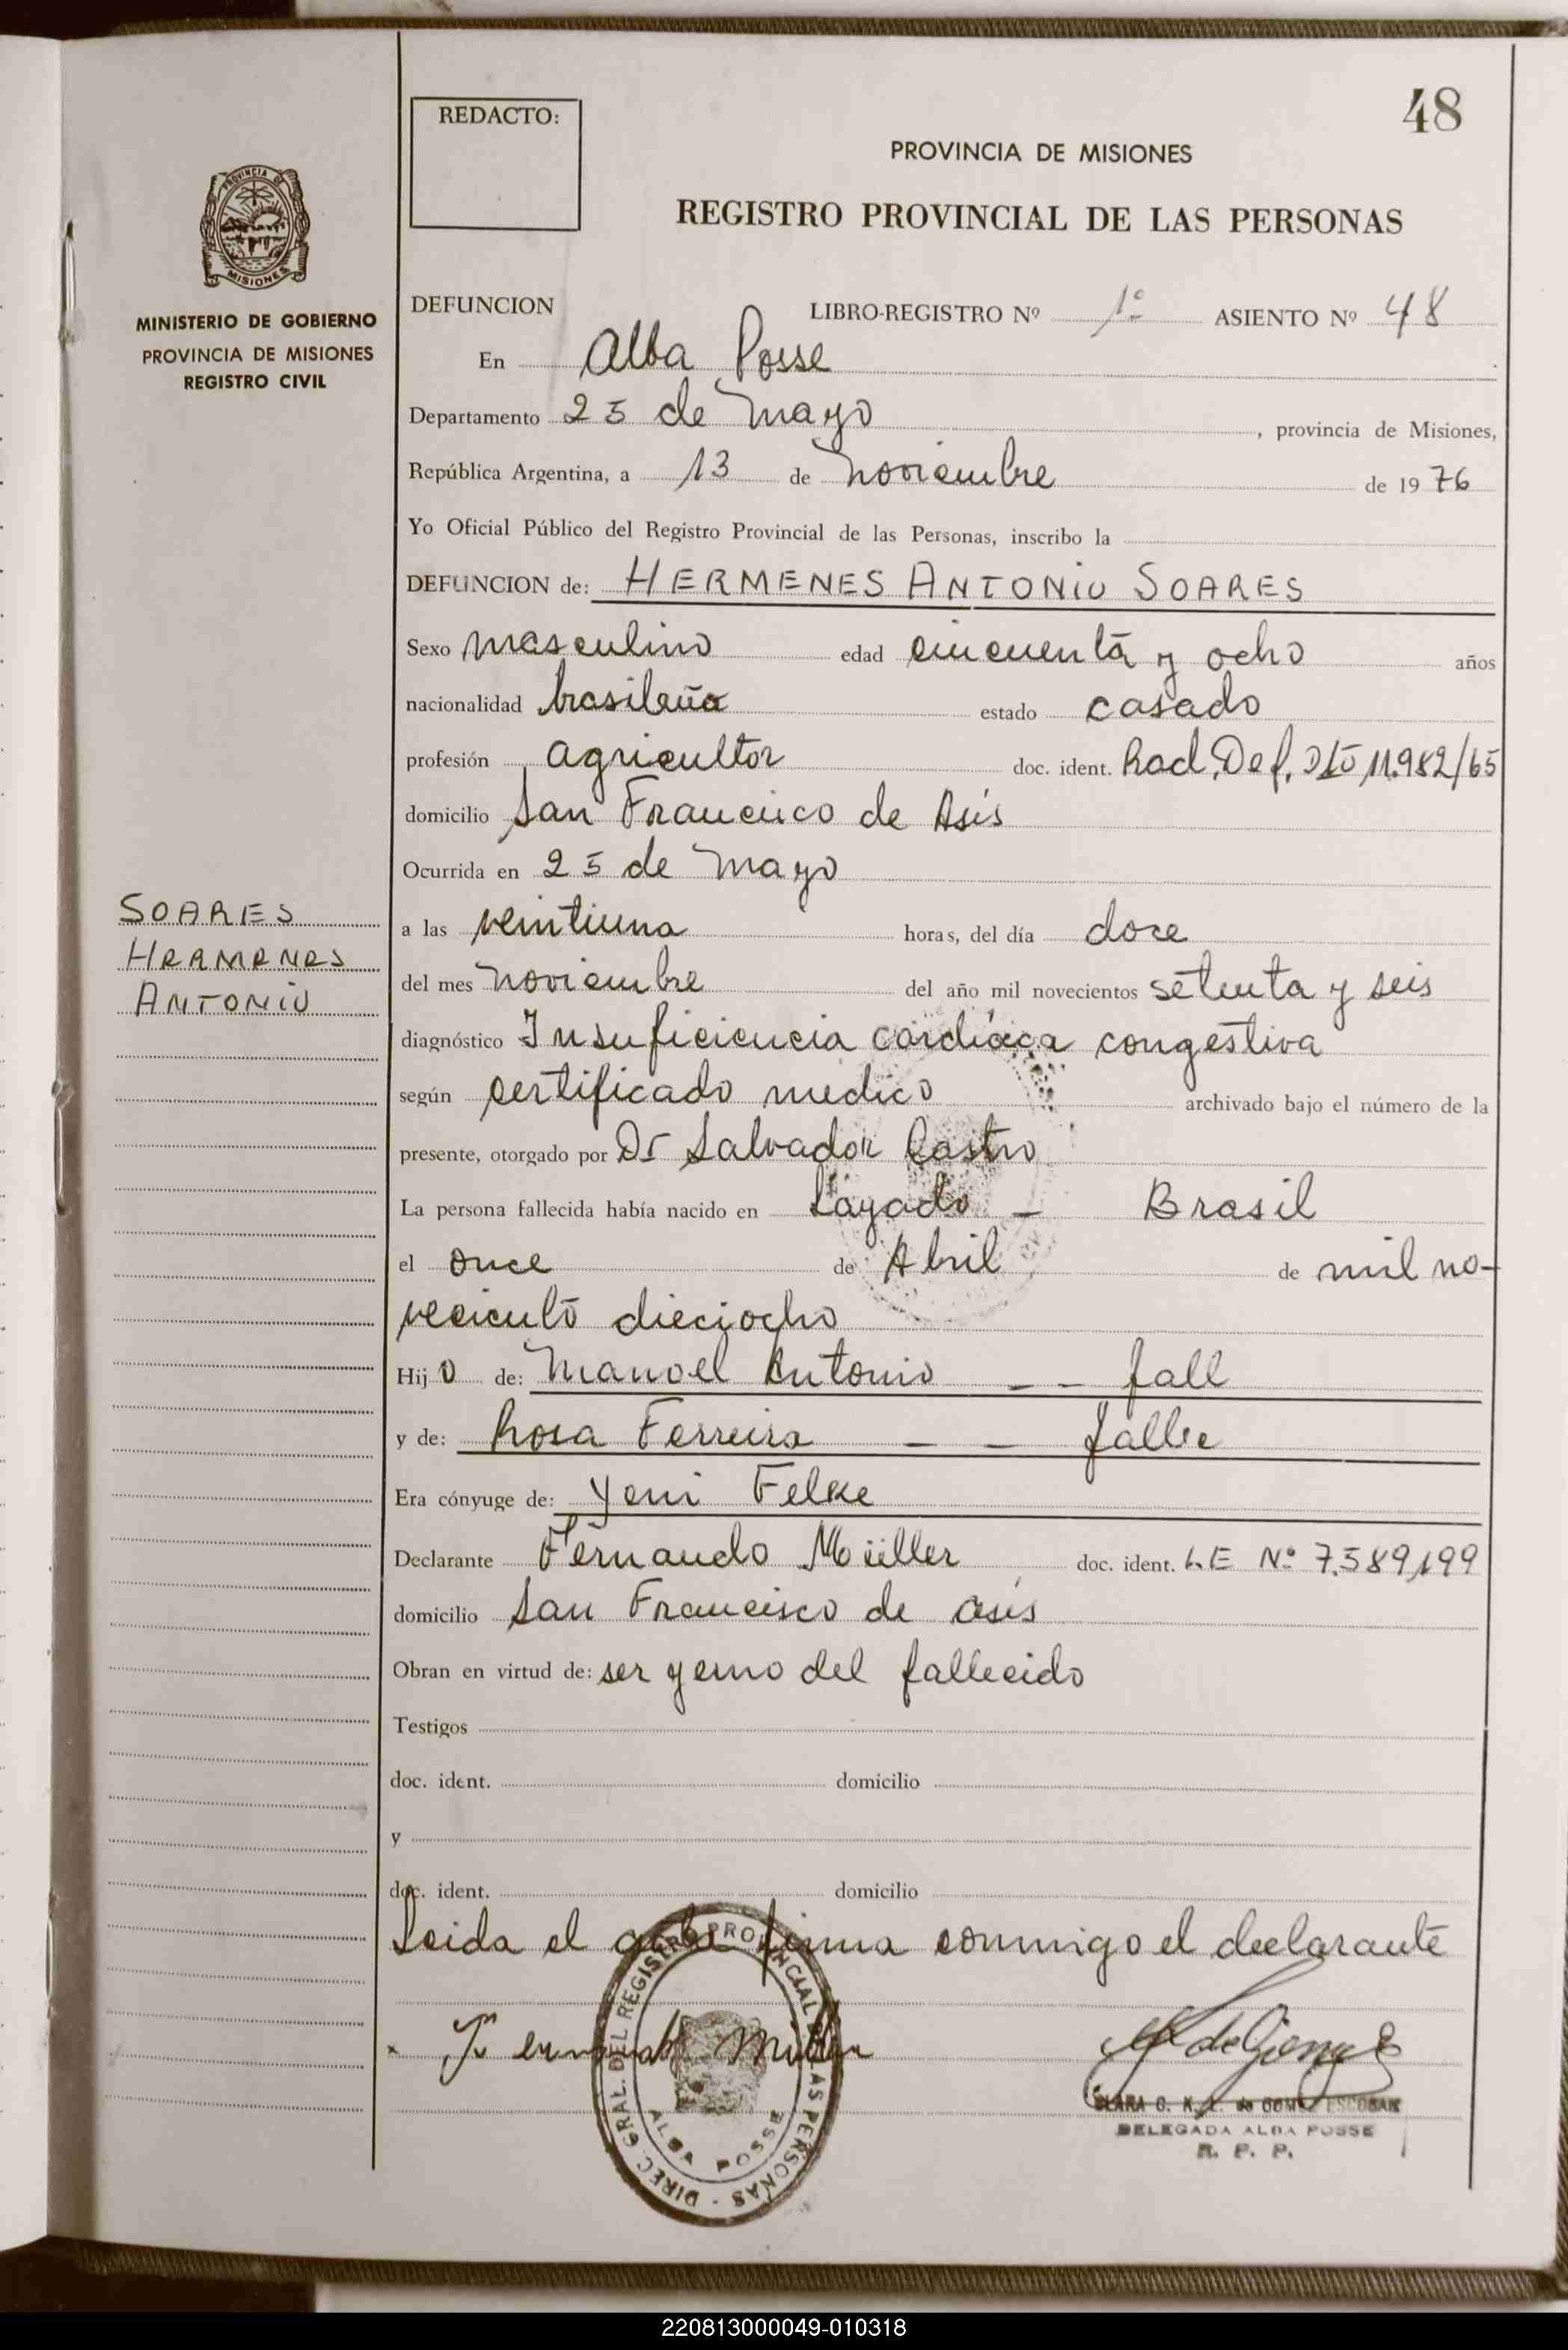 48
REDACTO:
PROVINCIA DE MISIONES
REGISTRO PROVINCIAL DE LAS PERSONAS
PROVINCIA DE
MISIONES
MINISTERIO DE GOBIERNO
PROVINCIA DE MISIONES
REGISTRO CIVIL
DEFUNCION LIBRO-REGISTRO Nº 1º ASIENTO Nº 48
En Alba Posse
Departamento 25 de Mayo, provincia de Misiones,
República Argentina, a 13 de noviembre de 1976
Yo Oficial Público del Registro Provincial de las Personas, inscribo la
DEFUNCION de: HERMENES ANTONIO SOARES
Sexo masculino edad cincuenta y ocho años
nacionalidad brasileña estado casado
profesión agricultor doc. ident. Rad. Def. 11.982/65
domicilio San Francisco de Asís
Ocurrida en 25 de Mayo
SOARES
HERMENES
ANTONIO
a las veintiuna horas, del día doce
del mes noviembre del año mil novecientos setenta y seis
diagnóstico Insuficiencia cardíaca congestiva
según certificado medico archivado bajo el número de la
presente, otorgado por Dr Salvador Castro
La persona fallecida había nacido en Lagado - Brasil
el once de Abril de mil no-
veciento dieciocho
Hijo de: Manoel Antonio - - fall
y de: Rosa Ferreira - - falle
Era cónyuge de: Yeni Felke
Declarante Fernando Müller doc. ident. L.E Nº 7.589,199
domicilio San Francisco de asís
Obran en virtud de: ser yerno del fallecido
Testigos
doc. ident. domicilio
y
doc. ident. domicilio
Leida el acta firma conmigo el declarante
x Fernando Müller
DIREC. GRAL. DEL REGISTRO PROVINCIAL DE LAS PERSONAS
ALBA POSSE
CLARA C. K. de GOMEZ ESCOBAR
DELEGADA ALBA POSSE
R. P. P.
220813000049-010318